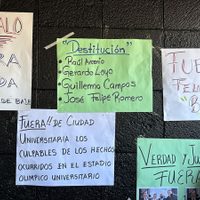 ALO
RA
DA
DE BAJA
"Destitución"
• Raúl Arcenio
• Gerardo Leyo
• Guillermo Campos
• José Felipe Romero
FUERA!! DE CIUDAD
UNIVERSITARIA LOS
CULPABLES DE LOS HECHOS
OCURRIDOS EN EL ESTADIO
OLIMPICO UNIVERSITARIO
FUE
VERDAD Y JU
FUERA